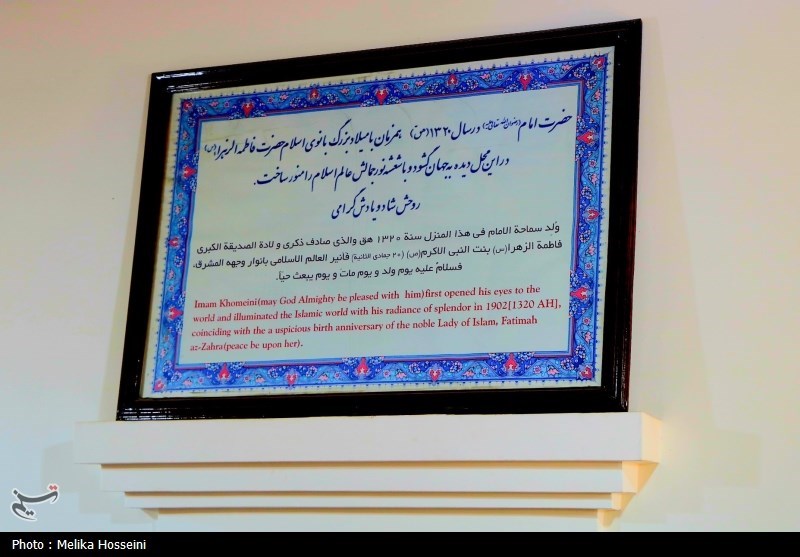 حضرت امام (رضوان الله تعالی علیه) در سال ۱۳۲۰ (هـ ق) همزمان با میلاد بزرگ بانوی اسلام حضرت فاطمه الزهرا (س)
در این محل دیده به جهان گشود و با شعشه نور جمالش عالم اسلام را منور ساخت.
روحش شاد و یادش گرامی
وُلد سماحة الامام فی هذا المنزل سنة ۱۳۲۰ هق والذی صادف ذکری و لادة الصدیقة الکبری
فاطمة الزهرا(س) بنت النبی الاکرم(ص) (۲۰ جمادی الثانیة) فأنیر العالم الاسلامی بانوار وجهه المشرق،
فسلامٌ علیه یوم ولد و یوم مات و یوم یبعث حیاً.
Imam Khomeini(may God Almighty be pleased with him)first opened his eyes to the
world and illuminated the Islamic world with his radiance of splendor in 1902[1320 AH],
coinciding with the a uspicious birth anniversary of the noble Lady of Islam, Fatimah
az-Zahra(peace be upon her).
تسنیم
Photo : Melika Hosseini